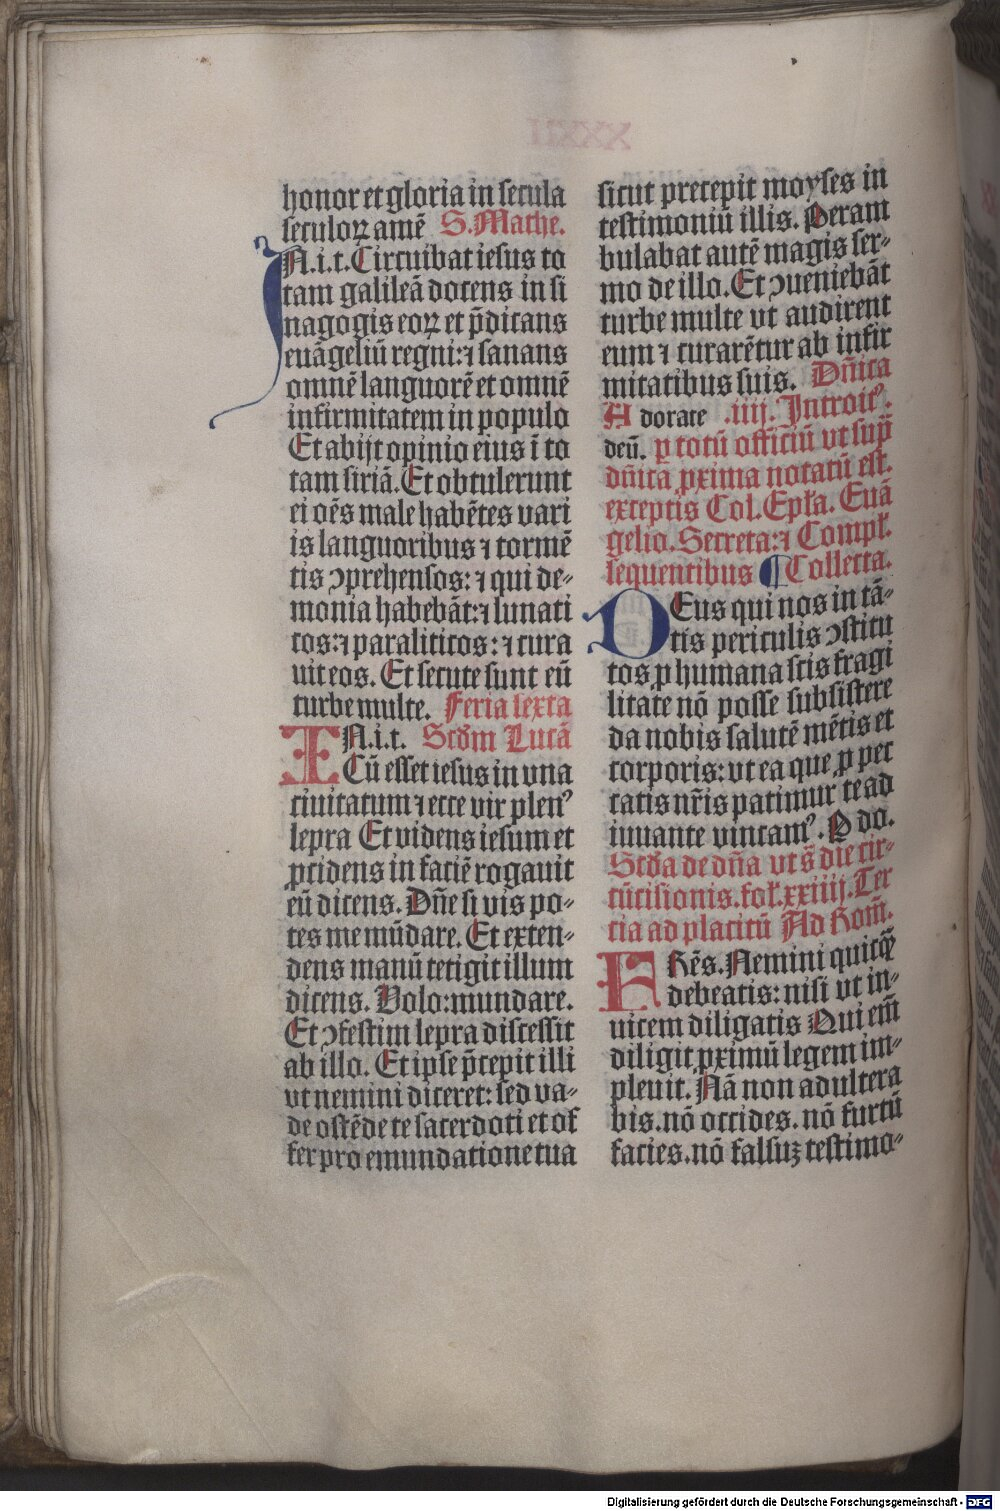 honor et gloria in secula
seculoꝝ amē S. Mathe.
IN.i.t. Circuibat iesus to
tam galileā docens in si
nagogis eoꝝ et p̄dicans
euāgeliū regni: ⁊ sanans
omnē languorē et omnē
infirmitatem in populo
Et abijt opinio eius ī to
tam siriā. Et obtulerunt
ei oēs male habētes vari
is languoribus ⁊ tormē
tis ↄprehensos: ⁊ qui de⸗
monia habebāt: ⁊ lunati
cos: ⁊ paraliticos: ⁊ cura
uit eos. Et secute sunt eū
turbe multe. Feria sexta
IN.i.t. Scd̄m Lucā
Cū esset iesus in vna
ciuitatum ⁊ ecce vir plenꝰ
lepra Et videns iesum et
ꝓcidens in faciē rogauit
eū dicens. Dn̄e si vis po⸗
tes me mūdare. Et exten⸗
dens manū tetigit illum
dicens. Volo: mundare.
Et ↄfestim lepra discessit
ab illo. Et ipse p̄cepit illi
vt nemini diceret: sed va⸗
de ostēde te sacerdoti et of
fer pro emundatione tua
sicut precepit moyses in
testimoniū illis. Peram
bulabat autē magis ser⸗
mo de illo. Et ↄueniebāt
turbe multe vt audirent
eum ⁊ curarētur ab infir
mitatibus suis. Dn̄ica
Adorate .iiij. Introitꝰ.
deū. ꝑ totū officiū vt sup̄
dn̄ica ꝓxima notatū est.
exceptis Col. Epl̄a. Euā
gelio. Secreta: ⁊ Compl̄.
sequentibus ¶ Collecta.
DEus qui nos in tā⸗
tis periculis ↄstitu
tos ꝓ humana scis fragi
litate nō posse subsistere
da nobis salutē mētis et
corporis: vt ea que ꝓ pec
catis nr̄is patimur te ad
iuuante vincamꝰ. P do.
Scd̄a de dn̄a vt s̄ die cir⸗
cūcisionis. fol̄. xxiiij. Ter
cia ad placitū Ad Rom̄.
FRēs. Nemini quicq̄
debeatis: nisi vt in⸗
uicem diligatis Qui em̄
diligit ꝓximū legem im⸗
pleuit. Nā non adultera
bis. nō occides. nō furtū
facies. nō falsuꝫ testimo⸗
Digitalisierung gefördert durch die Deutsche Forschungsgemeinschaft - DFG